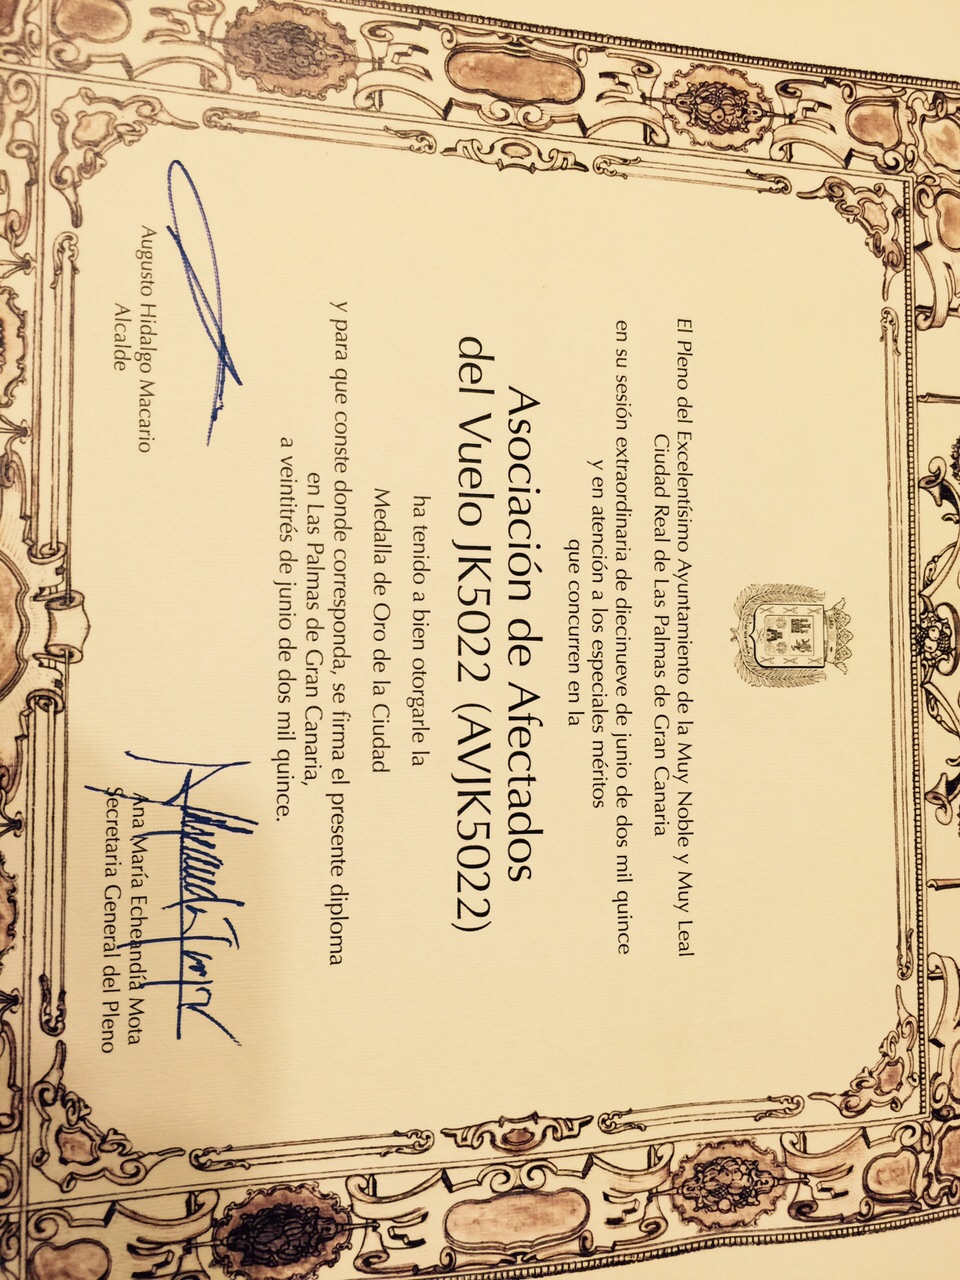 El Pleno del Excelentísimo Ayuntamiento de la Muy Noble y Muy Leal
Ciudad Real de Las Palmas de Gran Canaria
en su sesión extraordinaria de diecinueve de junio de dos mil quince
y en atención a los especiales méritos
que concurren en la
Asociación de Afectados
del Vuelo JK5022 (AVJK5022)
ha tenido a bien otorgarle la
Medalla de Oro de la Ciudad
y para que conste donde corresponda, se firma el presente diploma
en Las Palmas de Gran Canaria,
a veintitrés de junio de dos mil quince.
Augusto Hidalgo Macario
Alcalde
Ana María Echeandía Mota
Secretaria General del Pleno